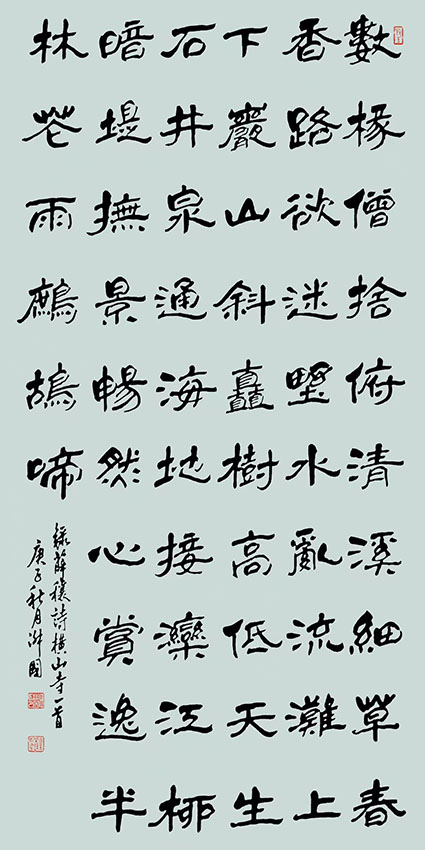 數椽僧捨俯清溪細草春
香路欲迷墅水亂流灘上
下巖山斜矗樹高低天生
石井泉通海地接灤江柳
暗堤撫景暢然心賞逸半
林花雨鷓鴣啼
錄薛穰詩橫山寺一首
庚子秋月國